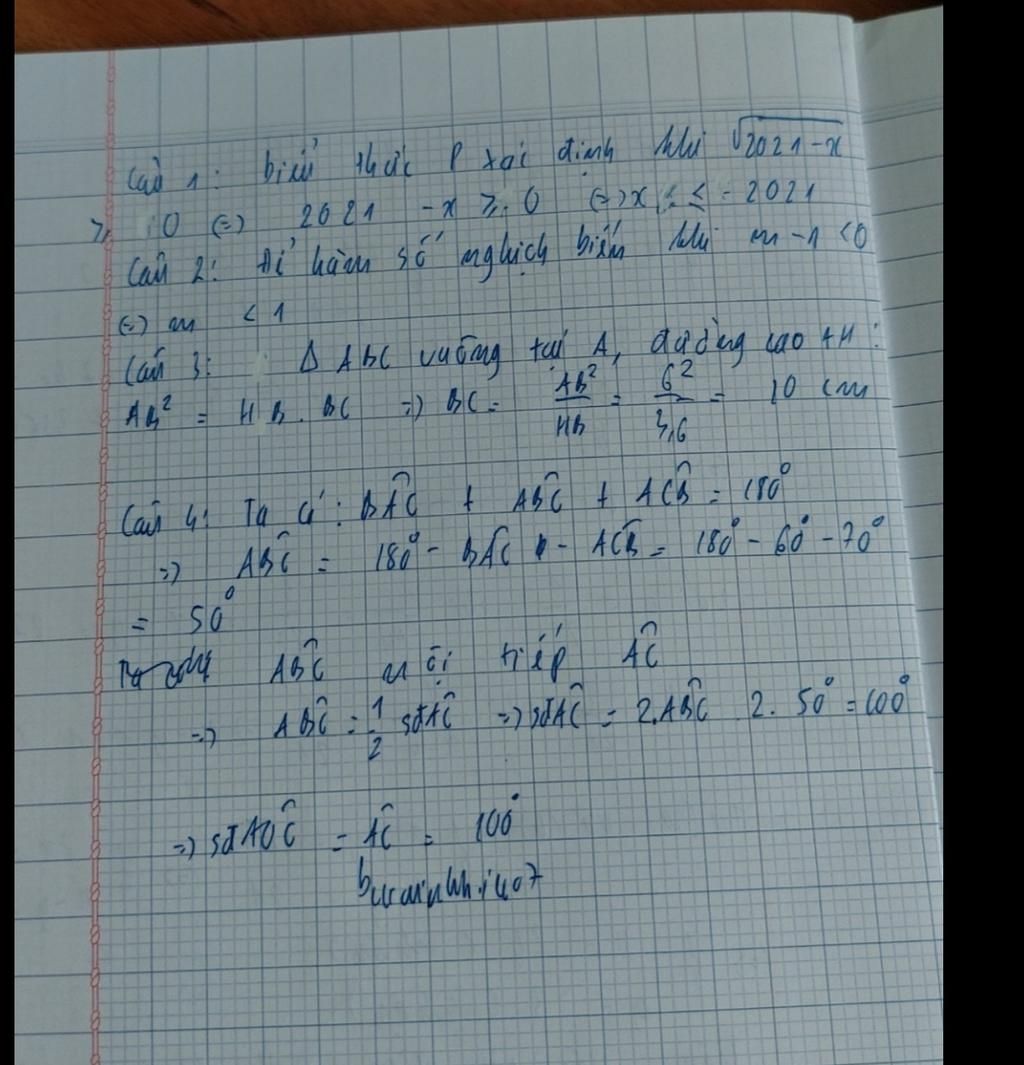 Câu 1: biểu thức P xác định khi √2021-x
≥ 0 (=) 2021 -x ≥ 0 (=) x ≤ 2021
Câu 2: Để hàm số nghịch biến khi m -1 <0
(=) m < 1
Câu 3: Δ ABC vuông tại A, đường cao AH:
AB² = HB. BC => BC = AB²/HB = 6²/3,6 = 10 cm
Câu 4: Ta có: BÂC + AB̂C + AĈB = 180°
=> AB̂C = 180° - BÂC - AĈB = 180° - 60° - 70°
= 50°
AB̂C nội tiếp AC̑
=> AB̂C = 1/2 sđAC̑ => sđAC̑ = 2.AB̂C 2. 50° = 100°
=> sđAÔC = AC̑ = 100°